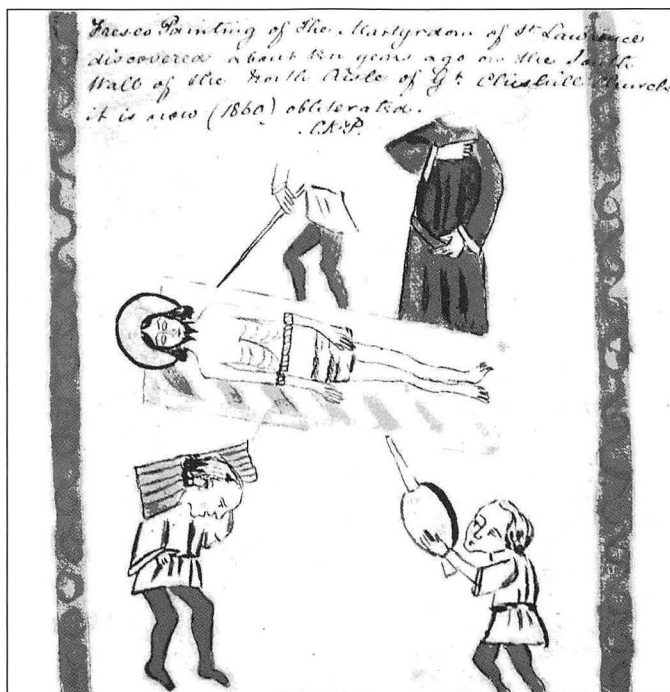 Fresco Painting of the Martyrdom of St Lawrence
discovered about ten years ago on the South
Wall of the North Aisle of Gt. Chishill Church
it is now (1860) obliterated.
C.K.P.